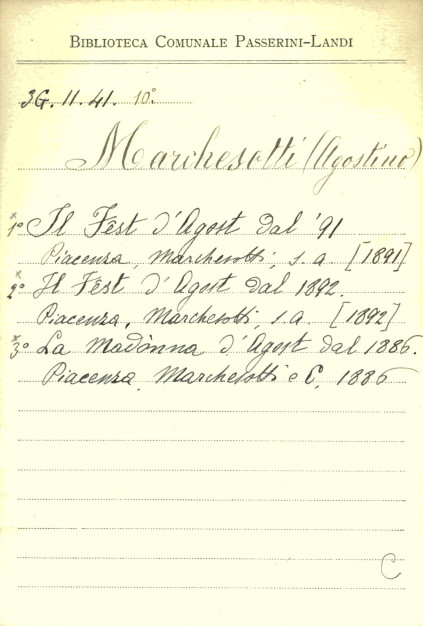 BIBLIOTECA COMUNALE PASSERINI-LANDI
3G. 11. 41. 10º
Marchesotti (Agostino)
1º Il Fest d'Agost dal '91
Piacenza, Marchesotti, s. a. [1891]
2º Il Fest d'Agost dal 1892.
Piacenza, Marchesotti, s. a. [1892]
3º La Madònna d'Agost dal 1886.
Piacenza, Marchesotti e C. 1886
C